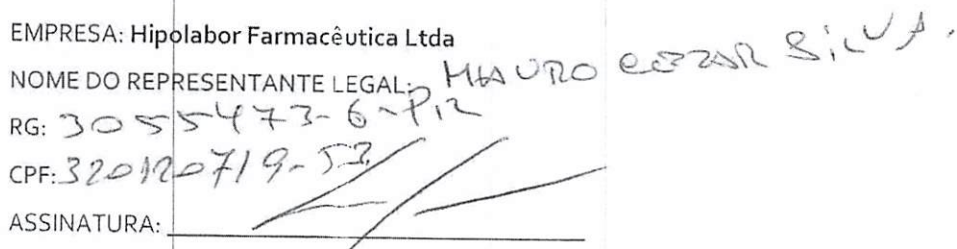 EMPRESA: Hipolabor Farmacêutica Ltda
NOME DO REPRESENTANTE LEGAL: MAURO CEZAR SILVA.
RG: 3055473-6-PR
CPF: 320120719-53
ASSINATURA: